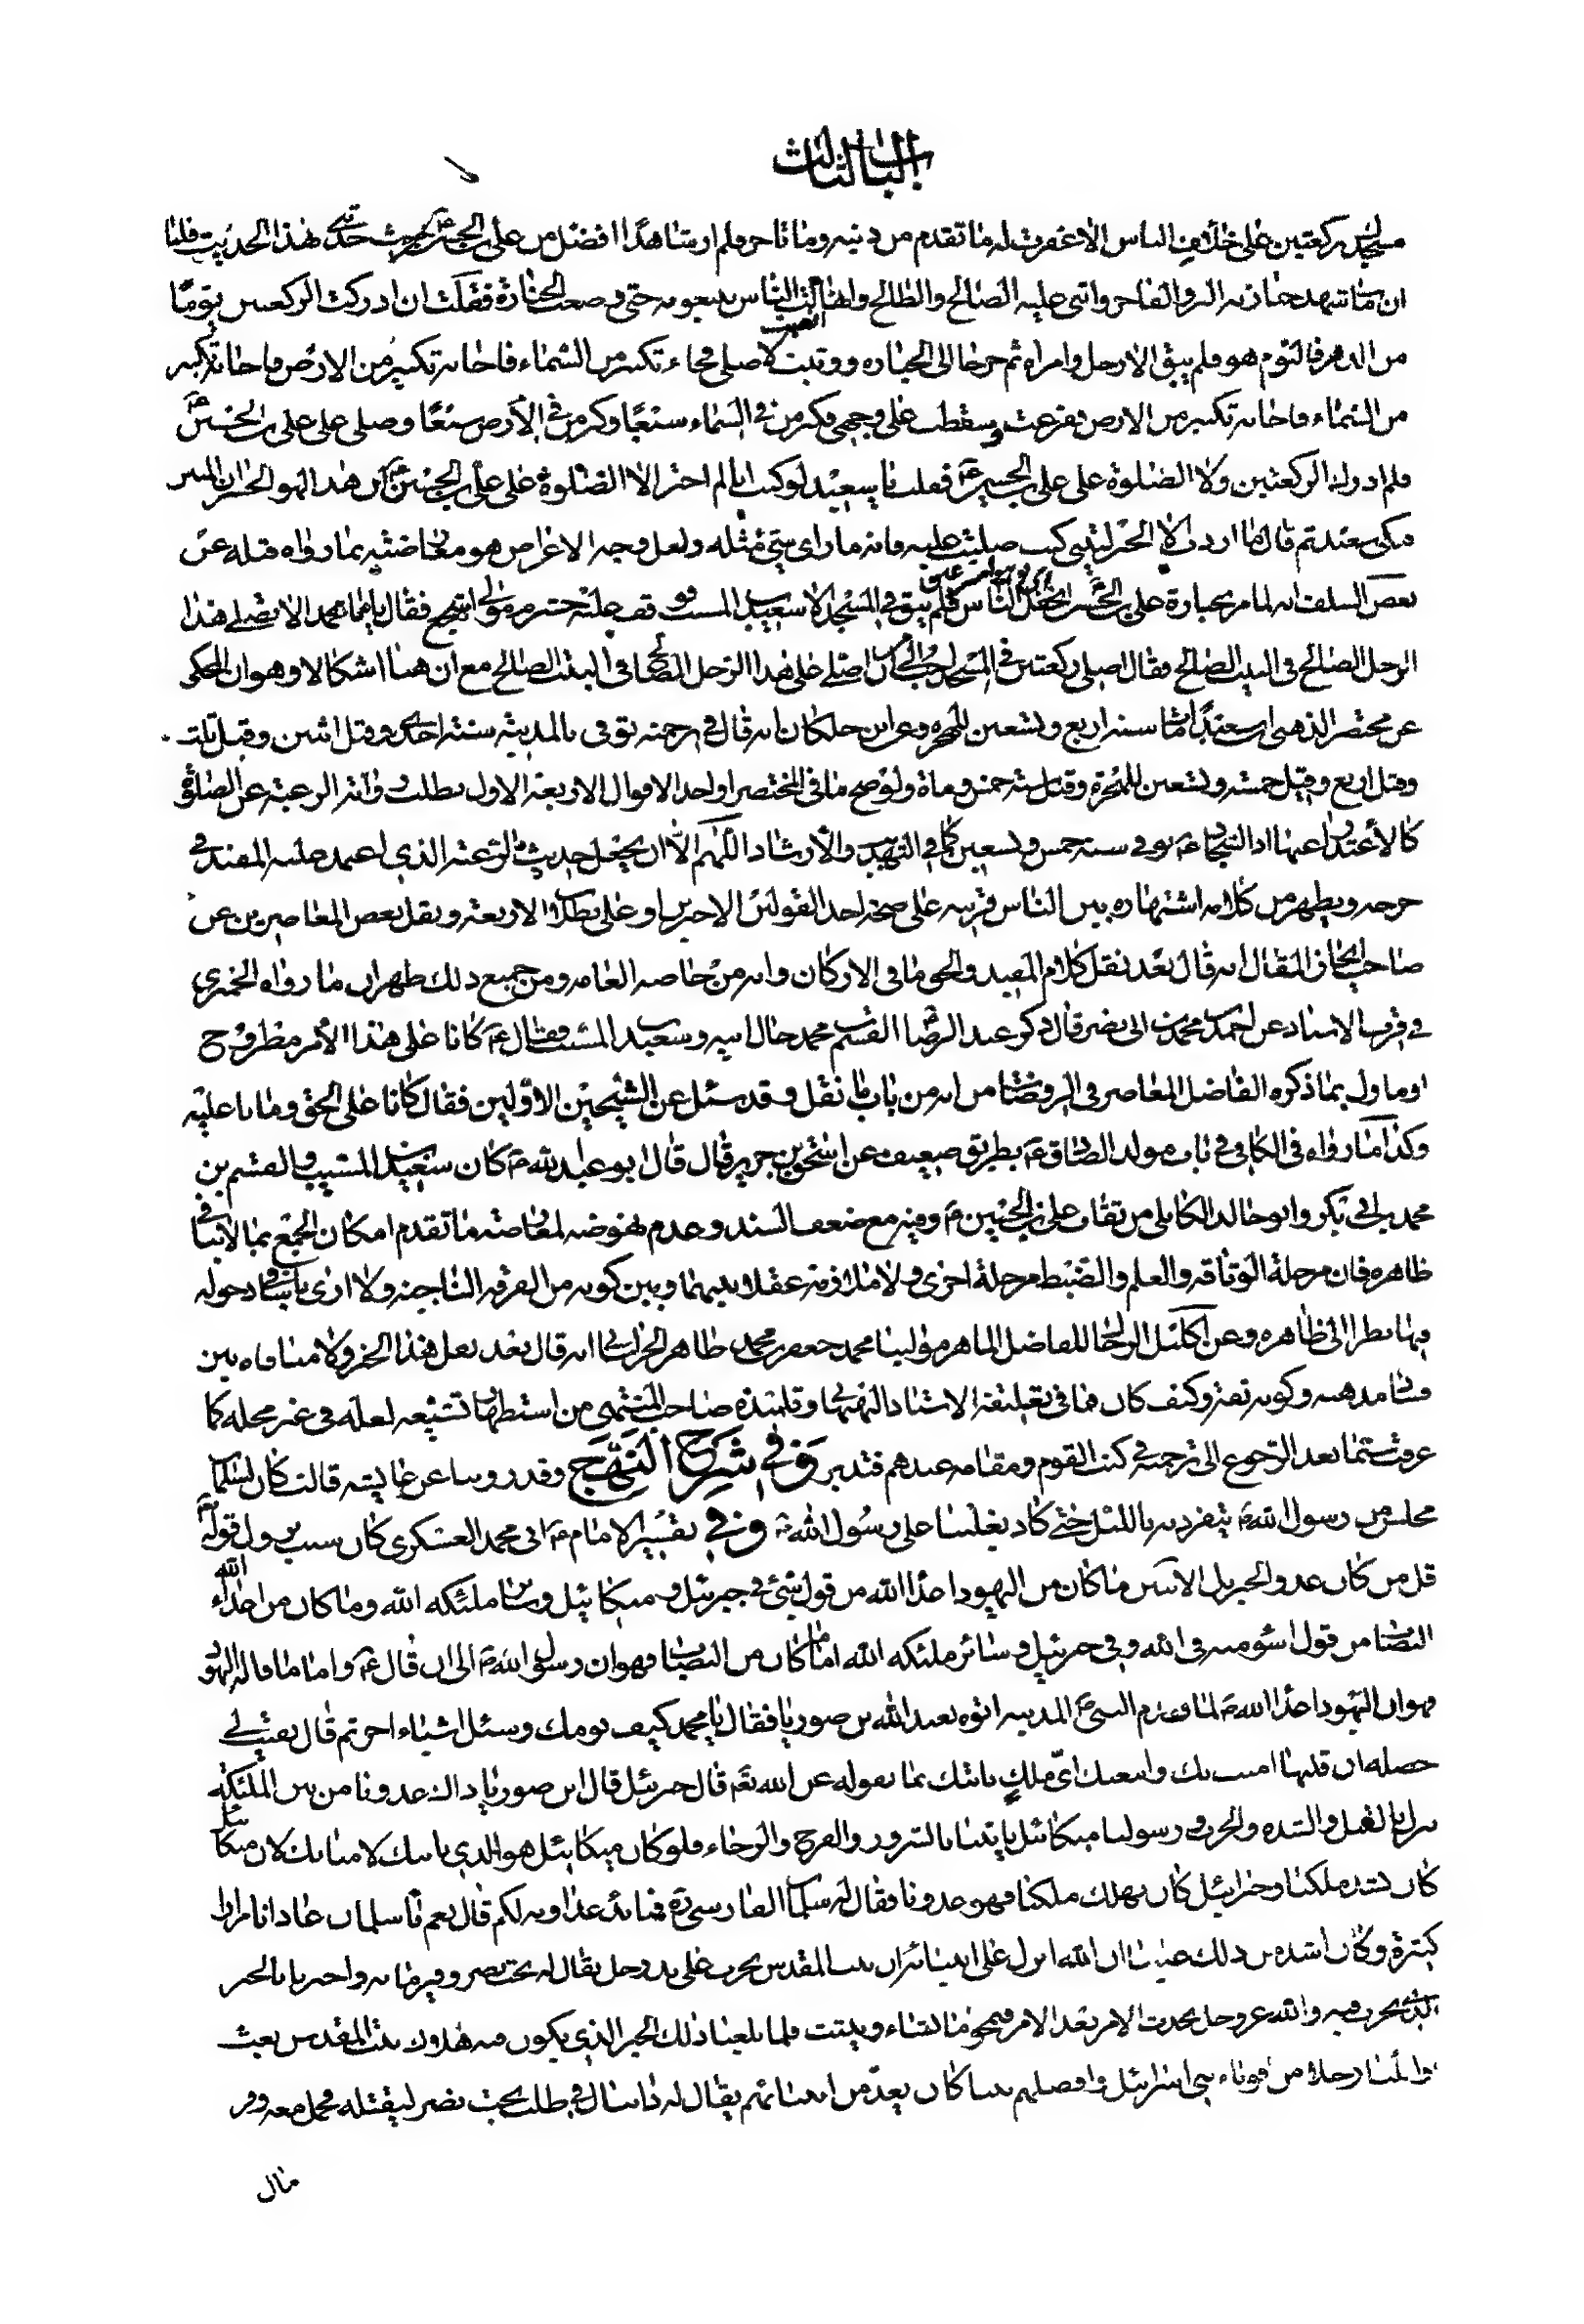 الباب الثالث
مسجدك ركعتين على خلاف الناس الا غفرت له ما تقدم من ذنبه وما تاخر فلم ار شاهدا افضل من على بن الحسين ع حيث حدثنى هذا الحديث فلما
ان مات شهد جنازته البر والفاجر واثنى عليه الصالح والطالح وانهال الناس يتبعونه حتى وضعت الجنازة فقلت ان ادركت الركعتين يوما
من الدهر فاليوم هو فلم يبق الا رجل وامراة ثم خرجا الى الجنازة ووثبت لاصلى فجاء تكبير من السماء فاجابه تكبير من الارض فاجابه تكبير
من السماء فاجابه تكبير من الارض ففزعت وسقطت على وجهى فكبر من فى السماء سبعا وكبر من فى الارض سبعا وصلى على على بن الحسين ع
فلم ادرك الركعتين ولا الصلوة على على بن الحسين ع فقلت يا سعيد لو كنت انا لم اختر الا الصلوة على على بن الحسين ع ان هذا لهو الخسران المبين
فبكى سعيد ثم قال ما اردت الا الخير ليتنى كنت صليت عليه فانه ما راى مثله ولعل وجه الاعراض هو معارضته بما رواه قبله عن
بعض السلف انه لما مر بجنازة على بن الحسين انجفل الناس فلم يبق فى المسجد الا سعيد بن المسيب فوقف عليه خشرم مولى اشجع فقال يا ابا محمد الا تصلى على هذا
الرجل الصالح فى البيت الصالح فقال اصلى ركعتين فى المسجد احب الى من ان اصلى على هذا الرجل الصالح فى البيت الصالح مع ان هنا اشكالا وهو ان المحكى
عن مختصر الذهبى ان سعيدا مات سنه اربع وتسعين للهجره وعن ابن خلكان انه قال فى ترجمته توفى بالمدينة سنة احدى وقيل اثنين وقيل ثلث
وقيل اربع وقيل خمسة وتسعين للهجرة وقيل سنة خمس ومأة ولو صح ما فى المختصر او احد الاقوال الاربعة الاول بطلت رواية الرغبة عن الصلوة
كالاعتذار عنها اذ السجاد ع توفى سنة خمس وتسعين كما فى التهذيب والارشاد اللهم الا ان يجعل حديث الرغبة الذى اعتمد عليه المفيد فى
جرحه ويظهر من كلامه اشتهاره بين الناس قرينه على صحة احد القولين الاخيرين او على بطلان الاربعة ونقل بعض المعاصرين عن
صاحب اتحاف المقال انه قال بعد نقل كلام المفيد والحق ما فى الاركان وانه من خاصه العامه ومن جميع ذلك ظهر ان ما رواه الحميرى
فى قرب الاسناد عن احمد بن محمد بن ابى نصر قال ذكر عند الرضا القسم بن محمد خال ابيه وسعيد بن المسيب فقال ع كانا على هذا الامر مطروح
او ماول بما ذكره الفاضل المعاصر فى الروضات من انه من باب ما نقل وقد سئل عن الشيخين الاولين فقال كانا على الحق وماتا عليه
وكذا ما رواه فى الكافى فى باب مولد الصادق ع بطريق ضعيف عن اسحق بن جرير قال قال ابو عبد الله ع كان سعيد بن المسيب والقسم بن
محمد بن ابى بكر وابو خالد الكابلى من ثقات على بن الحسين ع وفيه مع ضعف السند وعدم نهوضه لمعارضة ما تقدم امكان الجمع بما لا ينافى
ظاهره فان مرحلة الوثاقه والعلم والضبط مرحلة اخرى ولا ملازمة عقلا بينهما وبين كونه من الفرقه الناجيه ولا ارى باسا فى دخوله
فيها نظرا الى ظاهره وعن اكليل الرجال للفاضل الماهر مولينا محمد جعفر بن محمد طاهر الخراسانى انه قال بعد نقل هذا الخبر ولا منافاه بين
فساد مذهبه وكونه ثقة وكيف كان فما فى تعليقة الاستاد البهبهانى وتلميذه صاحب المنتهى من استظهار تشيعه لعله فى غير محله كما
عرفت سيما بعد الرجوع الى ترجمته فى كتب القوم ومقامه عندهم فتدبر وفى شرح النهج وقد روينا عن عايشه قالت كان لسلمان
مجلس من رسول الله ص ينفرد به بالليل حتى كاد يغلبنا على رسول الله ص وفى تفسير الامام ع ابى محمد العسكرى كان سبب نزول قوله تع
قل من كان عدوا لجبريل الايتين ما كان من اليهود اعداء الله من قول سيئ فى جبرئيل وميكائيل وسائر ملئكه الله وما كان من اعداء الله
النصاب من قول اسوء منه فى الله وفى جبرئيل وسائر ملئكه الله اما ما كان من النصاب فهو ان رسول الله ص الى ان قال ع واما ما قاله اليهود
فهو ان اليهود اعداء الله لما قدم النبى ص المدينه اتوه بعبد الله بن صوريا فقال يا محمد كيف نومك وسئل اشياء اخر ثم قال بقيت لى
خصله ان قلتها امنت بك واتبعتك اى ملك ياتيك بما تقوله عن الله تع قال جبرئيل قال ابن صوريا ذاك عدونا من بين الملئكة
ينزل بالقتل والشده والحرب ورسولنا ميكائيل ياتينا بالسرور والفرح والرخاء فلو كان ميكائيل هو الذى ياتيك لامنا بك لان ميكائيل
كان يشدد ملكنا وجبرئيل كان يهلك ملكنا فهو عدونا فقال له سلمان الفارسى ره فما بدء عداوته لكم قال نعم يا سلمان عادانا مرارا
كثيرة وكان اشد من ذلك علينا ان الله انزل على انبيائه ان بيت المقدس يخرب على يد رجل يقال له بخت نصر وفى زمانه واخبرنا بالحين
الذى يخرب فيه والله عز وجل يحدث الامر بعد الامر فيمحو ما يشاء ويثبت فلما بلغنا ذلك الحين الذى يكون فيه هلاك بيت المقدس بعث
اوائلنا رجلا من اقوياء بنى اسرائيل وافضلهم نبيا كان يعد من انبيائهم يقال له دانيال فى طلب بخت نصر ليقتله فحمل معه وقر
مال